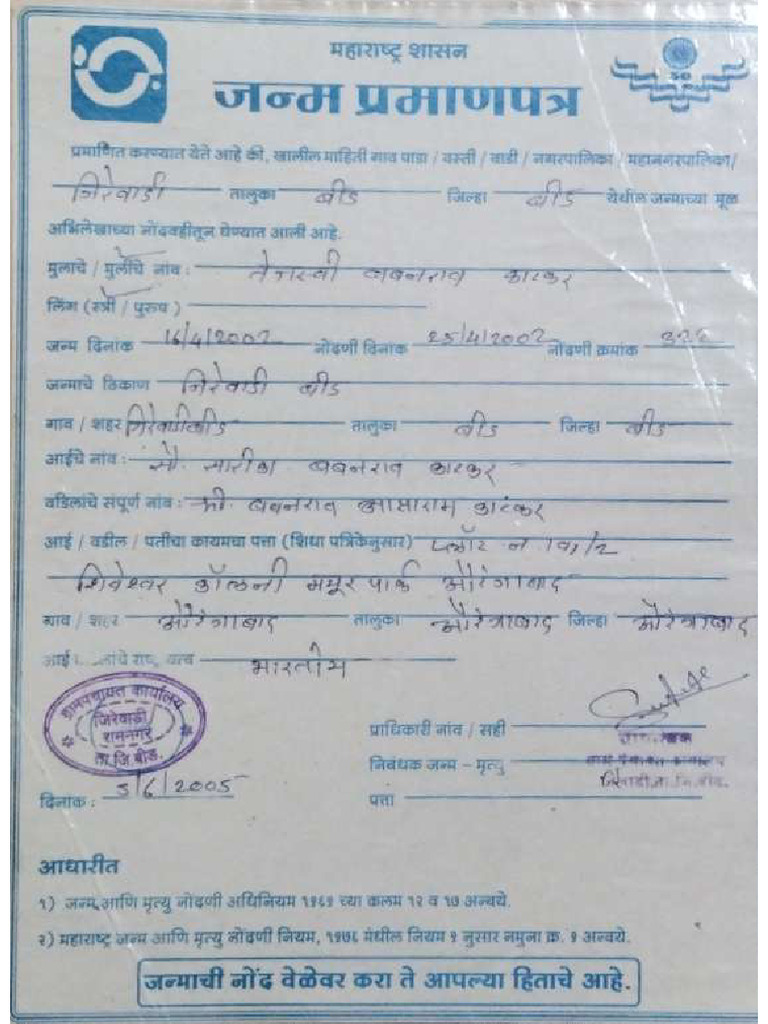 महाराष्ट्र शासन
50
जन्म प्रमाणपत्र
प्रमाणित करण्यात येते आहे की, खालील माहिती गाव पाडा / वस्ती / वाडी / नगरपालिका / महानगरपालिका/
जिरेवाडी तालुका बीड जिल्हा बीड येथील जन्माच्या मूळ
अभिलेखाच्या नोंदवहीतून घेण्यात आली आहे.
मुलाचे / मुलीचे नांव : तेजस्वी बबनराव काटकर
लिंग (स्त्री / पुरुष )
जन्म दिनांक 16/4/2002 नोंदणी दिनांक 25/4/2002 नोंदणी क्रमांक
जन्माचे ठिकाण जिरेवाडी बीड
गाव / शहर जिरेवाडी बीड तालुका बीड जिल्हा बीड
आईचे नांव : सौ. सारीका बबनराव काटकर
वडिलांचे संपूर्ण नांव : श्री. बबनराव आसाराम काटकर
आई / वडील / पतीचा कायमचा पत्ता (शिधा पत्रिकेनुसार) प्लॉट नं
कॉलनी मयूर पार्क औरंगाबाद
गाव / शहर औरंगाबाद तालुका औरंगाबाद जिल्हा औरंगाबाद
आई भारतीय
ग्रामपंचायत कार्यालय
जिरेवाडी
रामनगर
ता.जि.बीड.
प्राधिकारी नांव / सही
निबंधक जन्म - मृत्यु
दिनांक : 3/6/2005 पत्ता
आधारीत
१) जन्म आणि मृत्यु नोंदणी अधिनियम १९६९ च्या कलम १२ व १७ अन्वये.
२) महाराष्ट्र जन्म आणि मृत्यु नोंदणी नियम, १९७६ मधील नियम ९ नुसार नमुना क्र. ९ अन्वये.
जन्माची नोंद वेळेवर करा ते आपल्या हिताचे आहे.